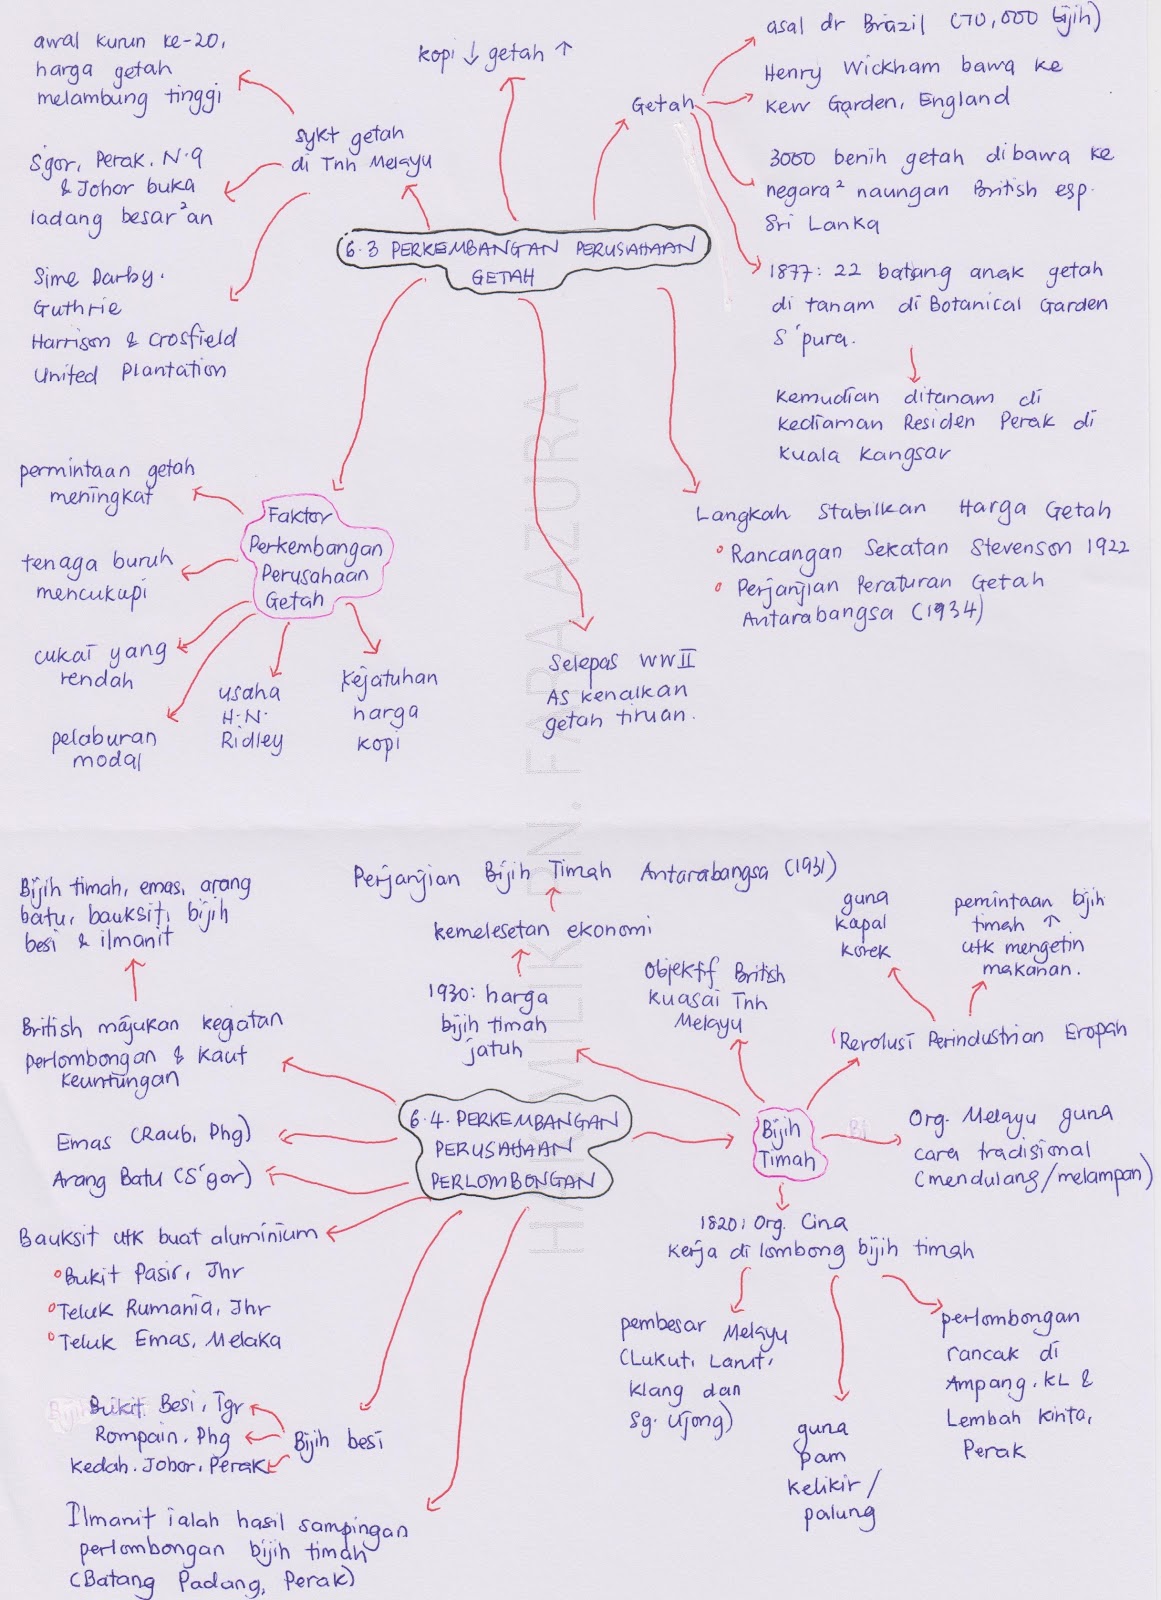 awal kurun ke-20,
harga getah
melambung tinggi
kopi ↓ getah ↑
asal dr Brazil (70,000 bijih)
Getah
Henry Wickham bawa ke
Kew Garden, England
3000 benih getah dibawa ke
negara² naungan British esp.
Sri Lanka
1877: 22 batang anak getah
di tanam di Botanical Garden
S'pura.
kemudian ditanam di
kediaman Residen Perak di
Kuala Kangsar
sykt getah
di Tnh Melayu
S'gor, Perak, N.9
& Johor buka
ladang besar²an
Sime Darby.
Guthrie
Harrison & Crosfield
United Plantation
6.3 PERKEMBANGAN PERUSAHAAN
GETAH
permintaan getah
meningkat
Faktor
Perkembangan
Perusahaan
Getah
tenaga buruh
mencukupi
cukai yang
rendah
pelaburan
modal
usaha
H.N.
Ridley
kejatuhan
harga
kopi
Selepas WWII
AS kenalkan
getah tiruan.
Langkah Stabilkan Harga Getah
° Rancangan Sekatan Stevenson 1922
° Perjanjian Peraturan Getah
Antarabangsa (1934)
HAKMILIK PN. FARA AZURA
Bijih timah, emas, arang
batu, bauksit, bijih
besi & ilmanit
British majukan kegatan
perlombongan & kaut
keuntungan
Perjanjian Bijih Timah Antarabangsa (1931)
kemelesetan ekonomi
1930: harga
bijih timah
jatuh
Objektif British
kuasai Tnh
Melayu
guna
kapal
korek
pemintaan bijih
timah ↑
utk mengetin
makanan.
Revolusi Perindustrian Eropah
6.4. PERKEMBANGAN
PERUSAHAAN
PERLOMBONGAN
Bijih
Timah
Org. Melayu guna
cara tradisional
(mendulang/melampan)
Emas (Raub, Phg)
Arang Batu (S'gor)
Bauksit utk buat aluminium
° Bukit Pasir, Jhr
° Teluk Rumania, Jhr
° Teluk Emas, Melaka
1820: Org. Cina
kerja di lombong bijih timah
pembesar Melayu
(Lukut, Larut,
Klang dan
Sg. Ujong)
guna
pam
kelikir/
palung
perlombongan
rancak di
Ampang, KL &
Lembah Kinta,
Perak
Bukit Besi, Tgr
Rompain, Phg
Kedah, Johor, Perak
Bijih besi
Ilmanit ialah hasil sampingan
perlombongan bijih timah
(Batang Padang, Perak)